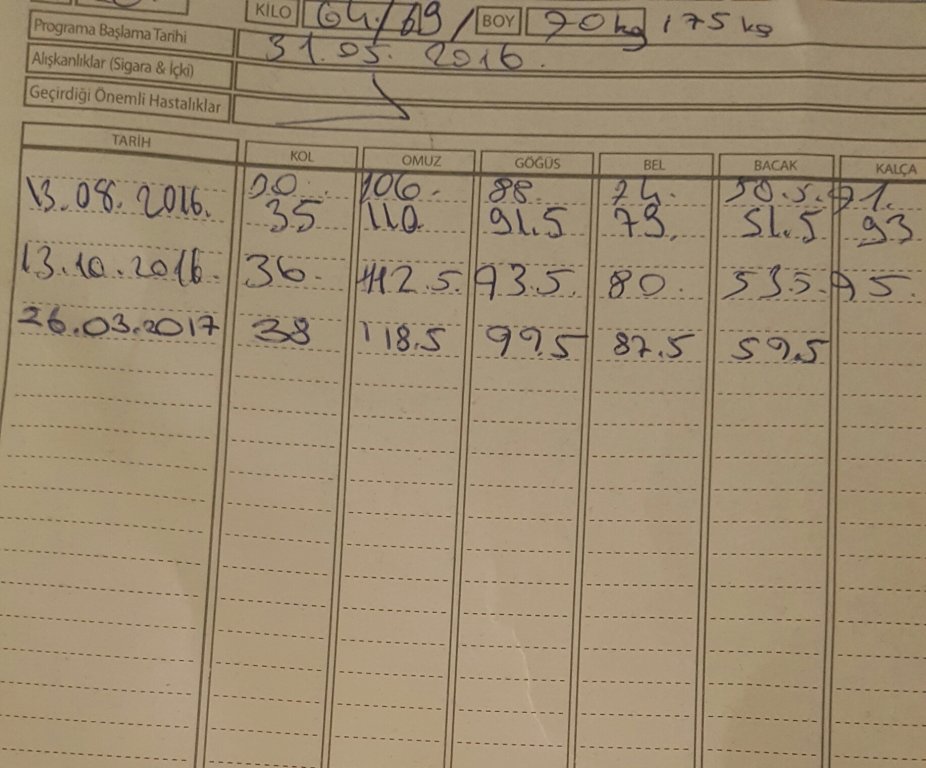 KİLO 64/69/ BOY 70 kg / 75 kg
Programa Başlama Tarihi 31.05.2016.
Alışkanlıklar (Sigara & İçki)
Geçirdiği Önemli Hastalıklar
TARİH KOL OMUZ GÖĞÜS BEL BACAK KALÇA
106. 88. 74. 50.5. 91.
13.08.2016. 35 110. 91.5 79. 51.5 93
13.10.2016. 36. 112.5. 93.5. 80. 53.5. 95.
26.03.2017 38 118.5 99.5 87.5 59.5